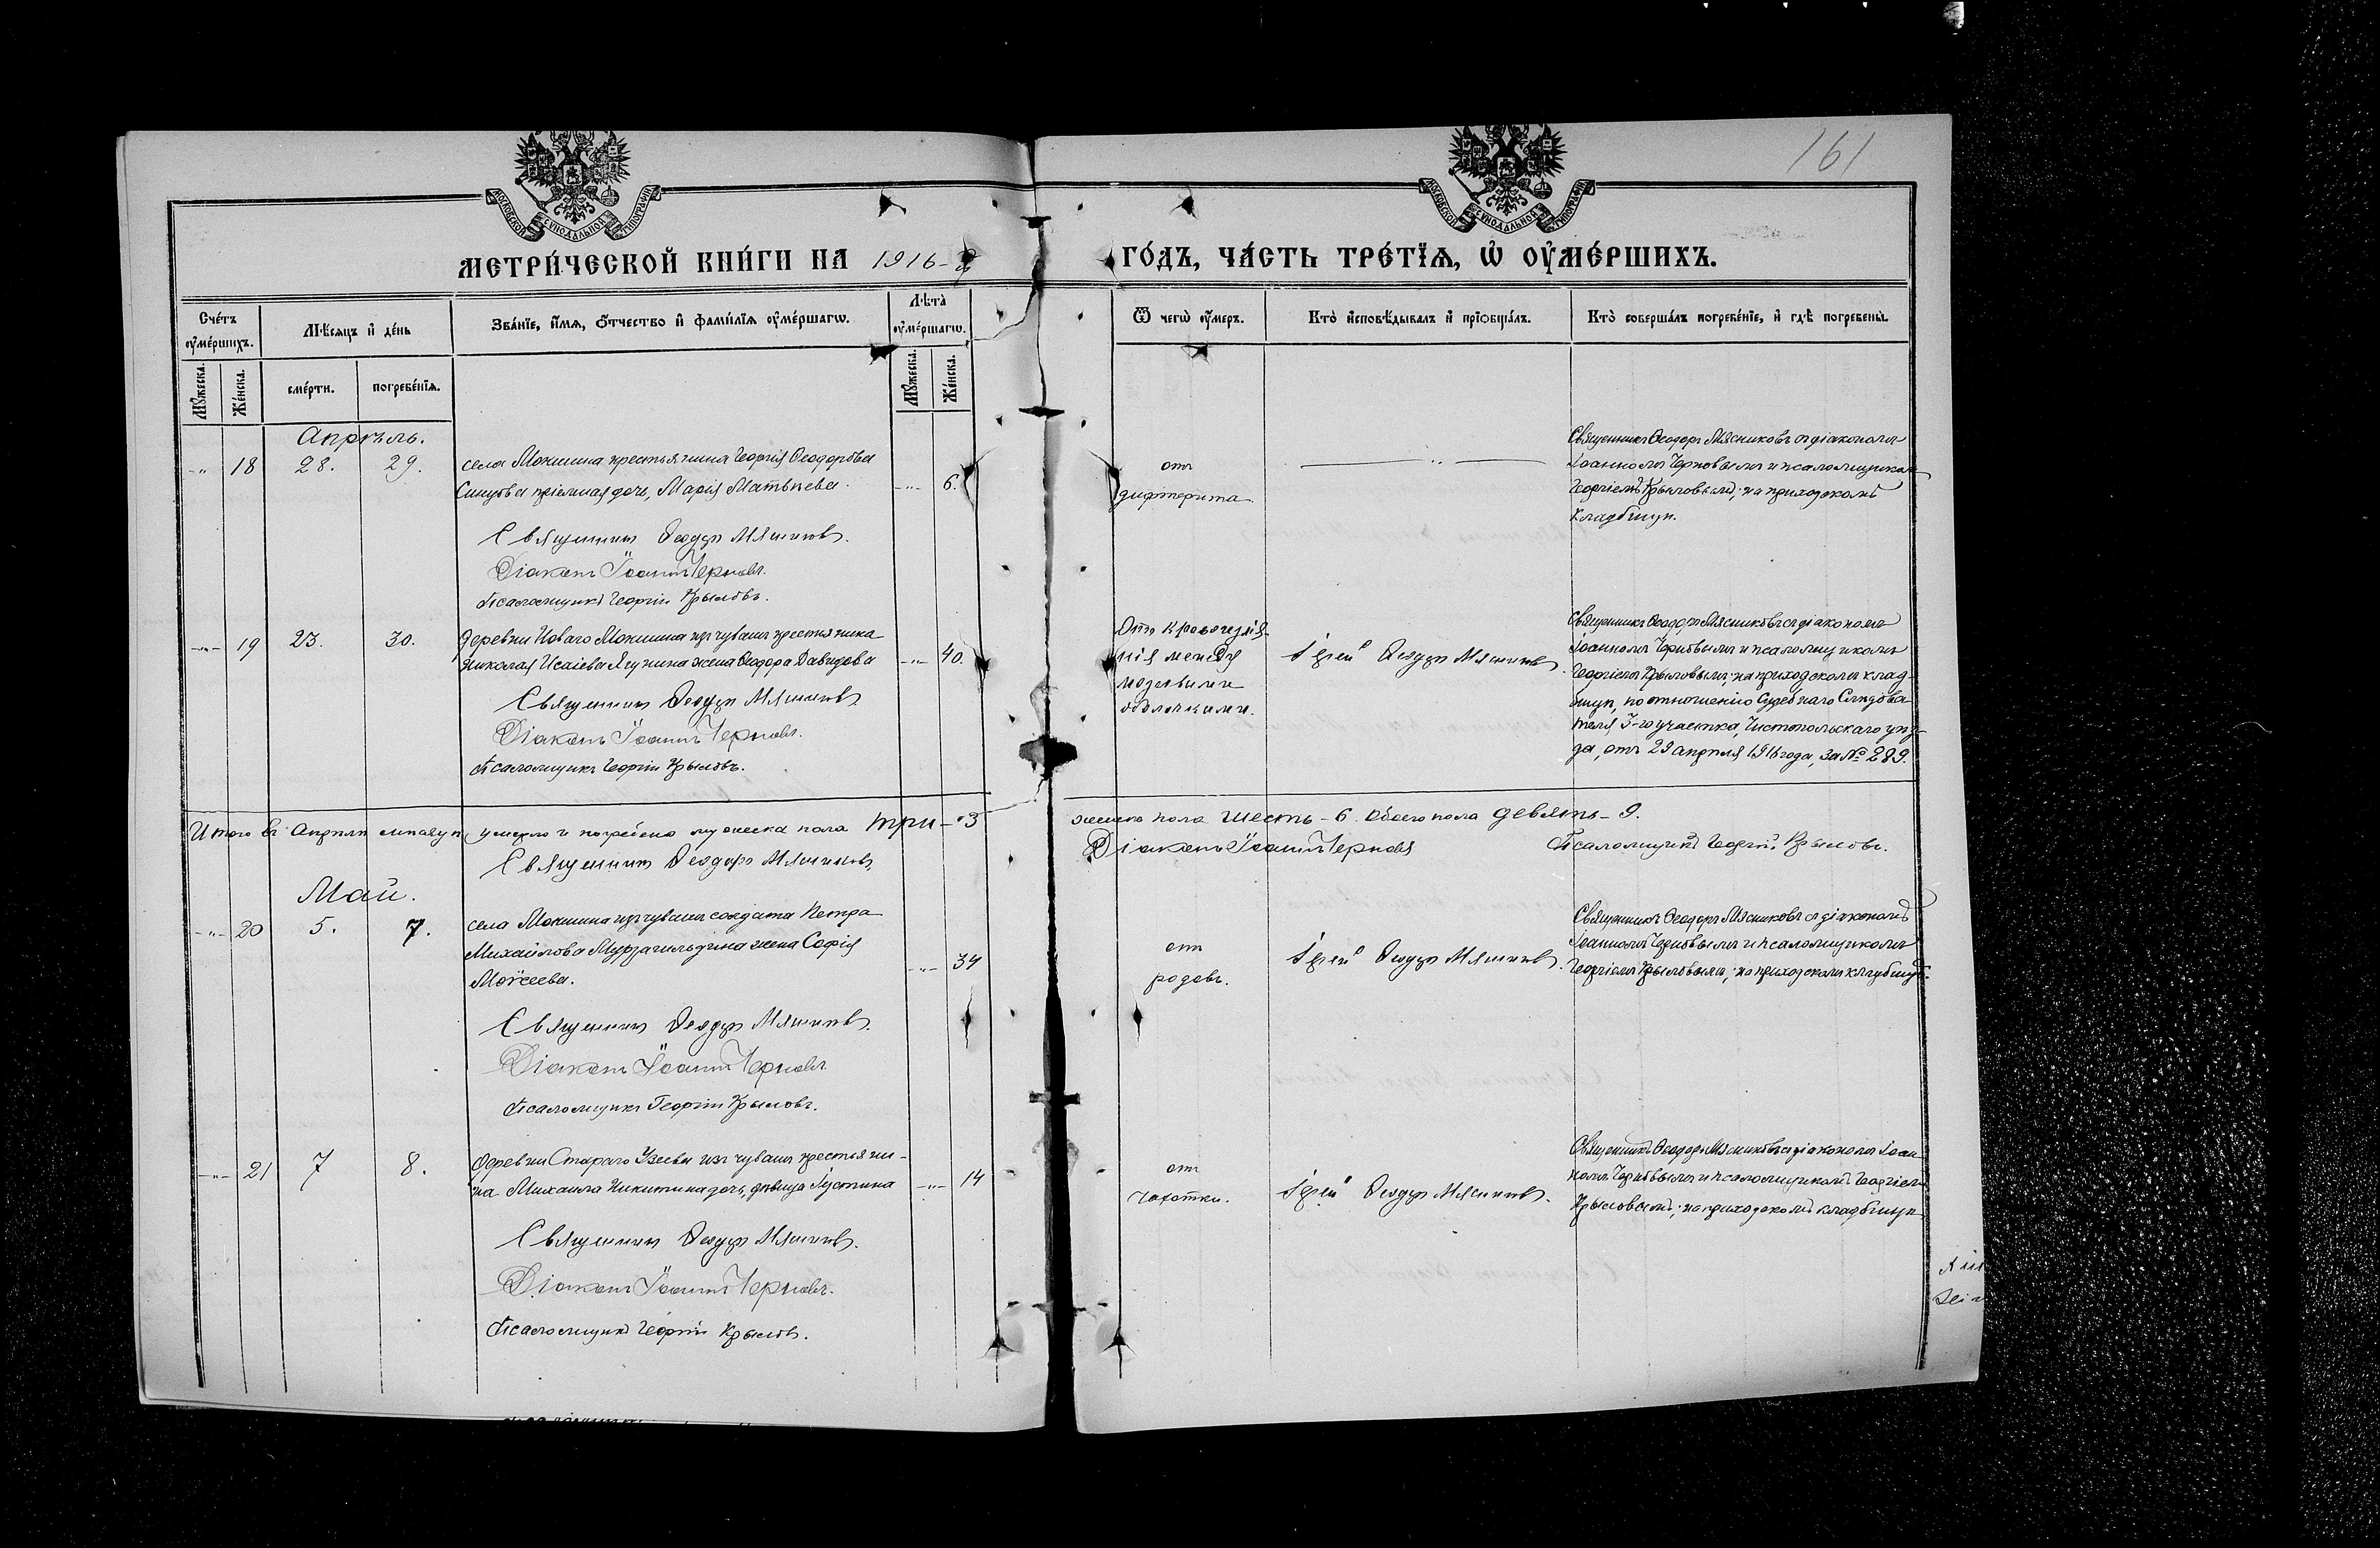 161
МОСКОВСКОЙ СѴНОДАЛЬНОЙ ТИПОГРАФІИ
МОСКОВСКОЙ СѴНОДАЛЬНОЙ ТИПОГРАФІИ
МЕТРИ́ЧЕСКОЙ КНИ́ГИ НА 1916-й
ГО́ДЪ, ЧА́СТЬ ТРЕ́ТЇѦ, Ѡ҆ ОУ҆МЕ́РШИХЪ.
Сче́тъ оу҆ме́ршихъ.
Мꙋ́жеска.
Же́нска.
Мѣ́сяцъ и҆ де́нь
сме́рти.
погребе́нїѧ.
Зва́нїе, и҆́мѧ, ѻ҆́тчество и҆ фами́лїѧ оу҆ме́ршагѡ.
Лѣта̀ оу҆ме́ршагѡ.
Мꙋ́жеска.
Же́нска.
Ѿ чегѡ̀ оу҆́меръ.
Кто̀ и҆сповѣ́дывалъ и҆ прїѡбща́лъ.
Кто̀ соверша́лъ погребе́нїе, и҆ гдѣ̀ погребены̀.
Апрѣль.
-"- 18 28. 29.
села Мокшина крестьянина Георгія Ѳеодорова
Синцова пріемная дочь, Марія Матвѣева.
-"- 6.
Священникъ Ѳеодоръ Мясниковъ.
Діаконъ Іоаннъ Черновъ.
Псаломщикъ Георгій Крыловъ.
отъ
дифтерита.
— " —
Священникъ Ѳеодоръ Мясниковъ съ діакономъ
Іоанномъ Черновымъ и псаломщикомъ
Георгіемъ Крыловымъ; на приходскомъ
кладбищѣ.
-"- 19 23. 30.
Деревни Новаго Мокшина изъ чувашъ крестьянина
Николая Исаіева Ягунина жена Ѳеодора Давидова
-"- 40.
Священникъ Ѳеодоръ Мясниковъ
Діаконъ Іоаннъ Черновъ.
Псаломщикъ Георгій Крыловъ.
Отъ кровоизлія-
нія между
мозговыми
оболочками.
Іерей Ѳеодоръ Мясниковъ.
Священникъ Ѳеодоръ Мясниковъ съ діакономъ
Іоанномъ Черновымъ и псаломщикомъ
Георгіемъ Крыловымъ; на приходскомъ клад-
бищѣ, по отношенію Судебнаго Слѣдова-
теля 3-го участка, Чистопольскаго уѣз-
да, отъ 29 апрѣля 1916 года, за № 289.
Итого въ апрѣлѣ мѣсяцѣ умерло и погребено мужеска пола три - 3
женска пола шесть - 6. обоего пола девять - 9.
Священникъ Ѳеодоръ Мясниковъ,
Діаконъ Іоаннъ Черновъ
Псаломщикъ Георгій Крыловъ.
Май.
-"- 20 5. 7.
села Мокшина изъ чувашъ солдата Петра
Михайлова Мурзагильдина жена Софія
Моѵсеева.
-"- 34
Священникъ Ѳеодоръ Мясниковъ.
Діаконъ Іоаннъ Черновъ
Псаломщикъ Георгій Крыловъ.
отъ
родовъ.
Іерей Ѳеодоръ Мясниковъ.
Священникъ Ѳеодоръ Мясниковъ съ діакономъ
Іоанномъ Черновымъ и псаломщикомъ
Георгіемъ Крыловымъ; на приходскомъ кладбищѣ.
-"- 21 7 8.
Деревни Стараго Узеева изъ чувашъ крестьяни-
на Михаила Никитина дочь, дѣвица Іустина
-"- 14
Священникъ Ѳеодоръ Мясниковъ.
Діаконъ Іоаннъ Черновъ.
Псаломщикъ Георгій Крыловъ.
отъ
чахотки.
Іерей Ѳеодоръ Мясниковъ.
Священникъ Ѳеодоръ Мясниковъ съ діакономъ Іоан-
номъ Черновымъ и псаломщикомъ Георгіемъ
Крыловымъ; на приходскомъ кладбищѣ